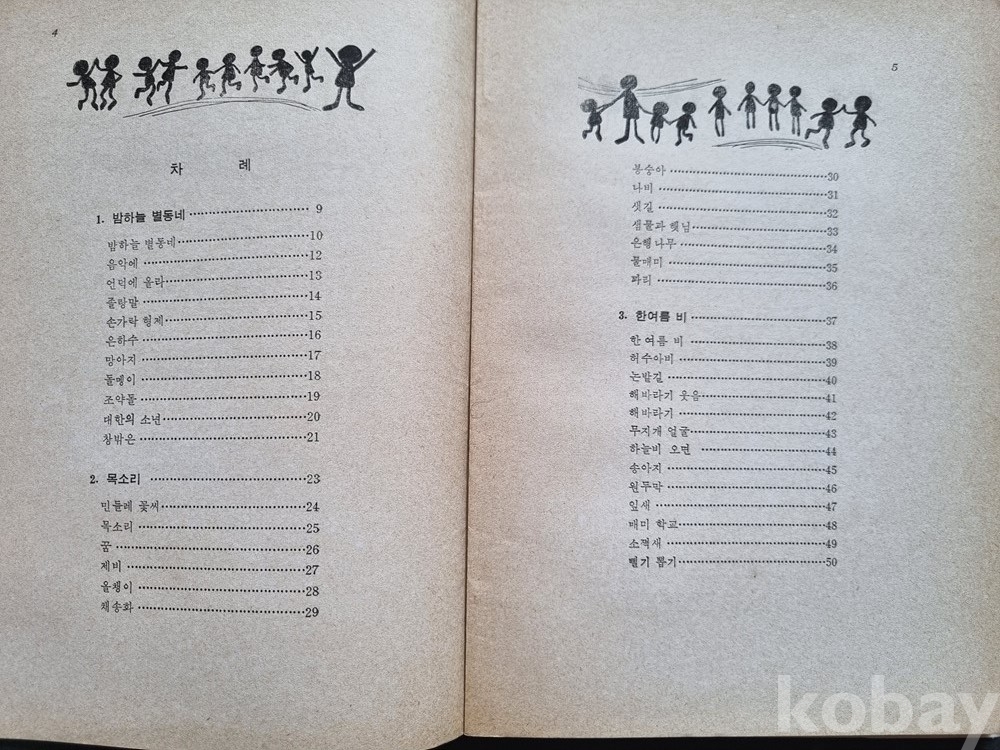 4
차 례
1. 밤하늘 별동네 ⋯⋯ 9
밤하늘 별동네 ⋯⋯ 10
음악에 ⋯⋯ 12
언덕에 올라 ⋯⋯ 13
졸랑말 ⋯⋯ 14
손가락 형제 ⋯⋯ 15
은하수 ⋯⋯ 16
망아지 ⋯⋯ 17
돌메이 ⋯⋯ 18
조약돌 ⋯⋯ 19
대한의 소년 ⋯⋯ 20
창밖은 ⋯⋯ 21
2. 목소리 ⋯⋯ 23
민들레 꽃씨 ⋯⋯ 24
목소리 ⋯⋯ 25
꿈 ⋯⋯ 26
제비 ⋯⋯ 27
올챙이 ⋯⋯ 28
채송화 ⋯⋯ 29
5
봉숭아 ⋯⋯ 30
나비 ⋯⋯ 31
샛길 ⋯⋯ 32
샘물과 햇님 ⋯⋯ 33
은행나무 ⋯⋯ 34
물매미 ⋯⋯ 35
파리 ⋯⋯ 36
3. 한여름 비 ⋯⋯ 37
한여름 비 ⋯⋯ 38
허수아비 ⋯⋯ 39
논밭길 ⋯⋯ 40
해바라기 웃음 ⋯⋯ 41
해바라기 ⋯⋯ 42
무지개 얼굴 ⋯⋯ 43
하늘비 오면 ⋯⋯ 44
송아지 ⋯⋯ 45
원두막 ⋯⋯ 46
잎새 ⋯⋯ 47
매미 학교 ⋯⋯ 48
소쩍새 ⋯⋯ 49
삘기 뽑기 ⋯⋯ 50
kobay